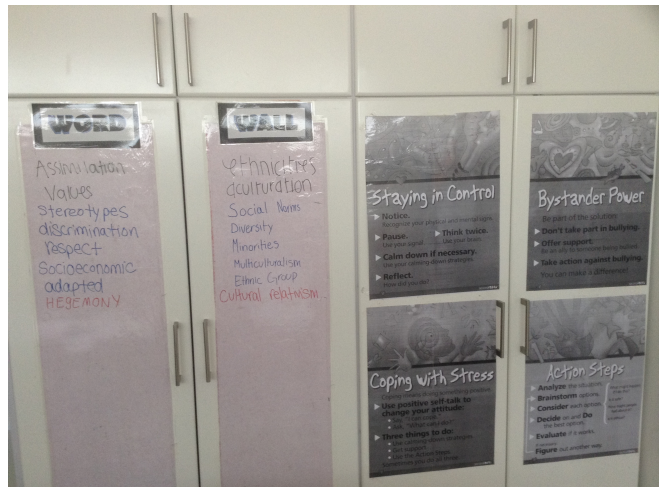 WORD
Assimilation
Values
Stereotypes
discrimination
respect
Socioeconomic
adapted
HEGEMONY
WALL
ethnicities
acculturation
Social Norms
Diversity
Minorities
Multiculturalism
Ethnic Group
Cultural relativism
Staying in Control
Notice.
Recognize your physical and mental signs.
Pause. Think twice.
Use your signal. Use your brain.
Calm down if necessary.
Use your calming down strategies.
Reflect.
How did you do?
Bystander Power
Be part of the solution.
Don't take part in bullying.
Offer support.
Be an ally to someone being bullied.
Take action against bullying.
You can make a difference!
Coping with Stress
Use positive self-talk to
change your attitude:
Three things to do:
Use calming down strategies.
Get support.
Use the Action Steps.
Action Steps
Analyze the situation.
Brainstorm options.
Consider each option.
Decide on and Do
the best option.
Evaluate if it works.
Figure out another way.